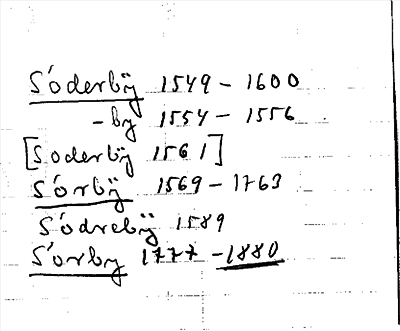 Söderbÿ 1549 – 1600
– by 1554 – 1556
[Soderbÿ 1561]
Sörbÿ 1569 – 1763
Södrebÿ 1589
Sörby 1777 – 1880